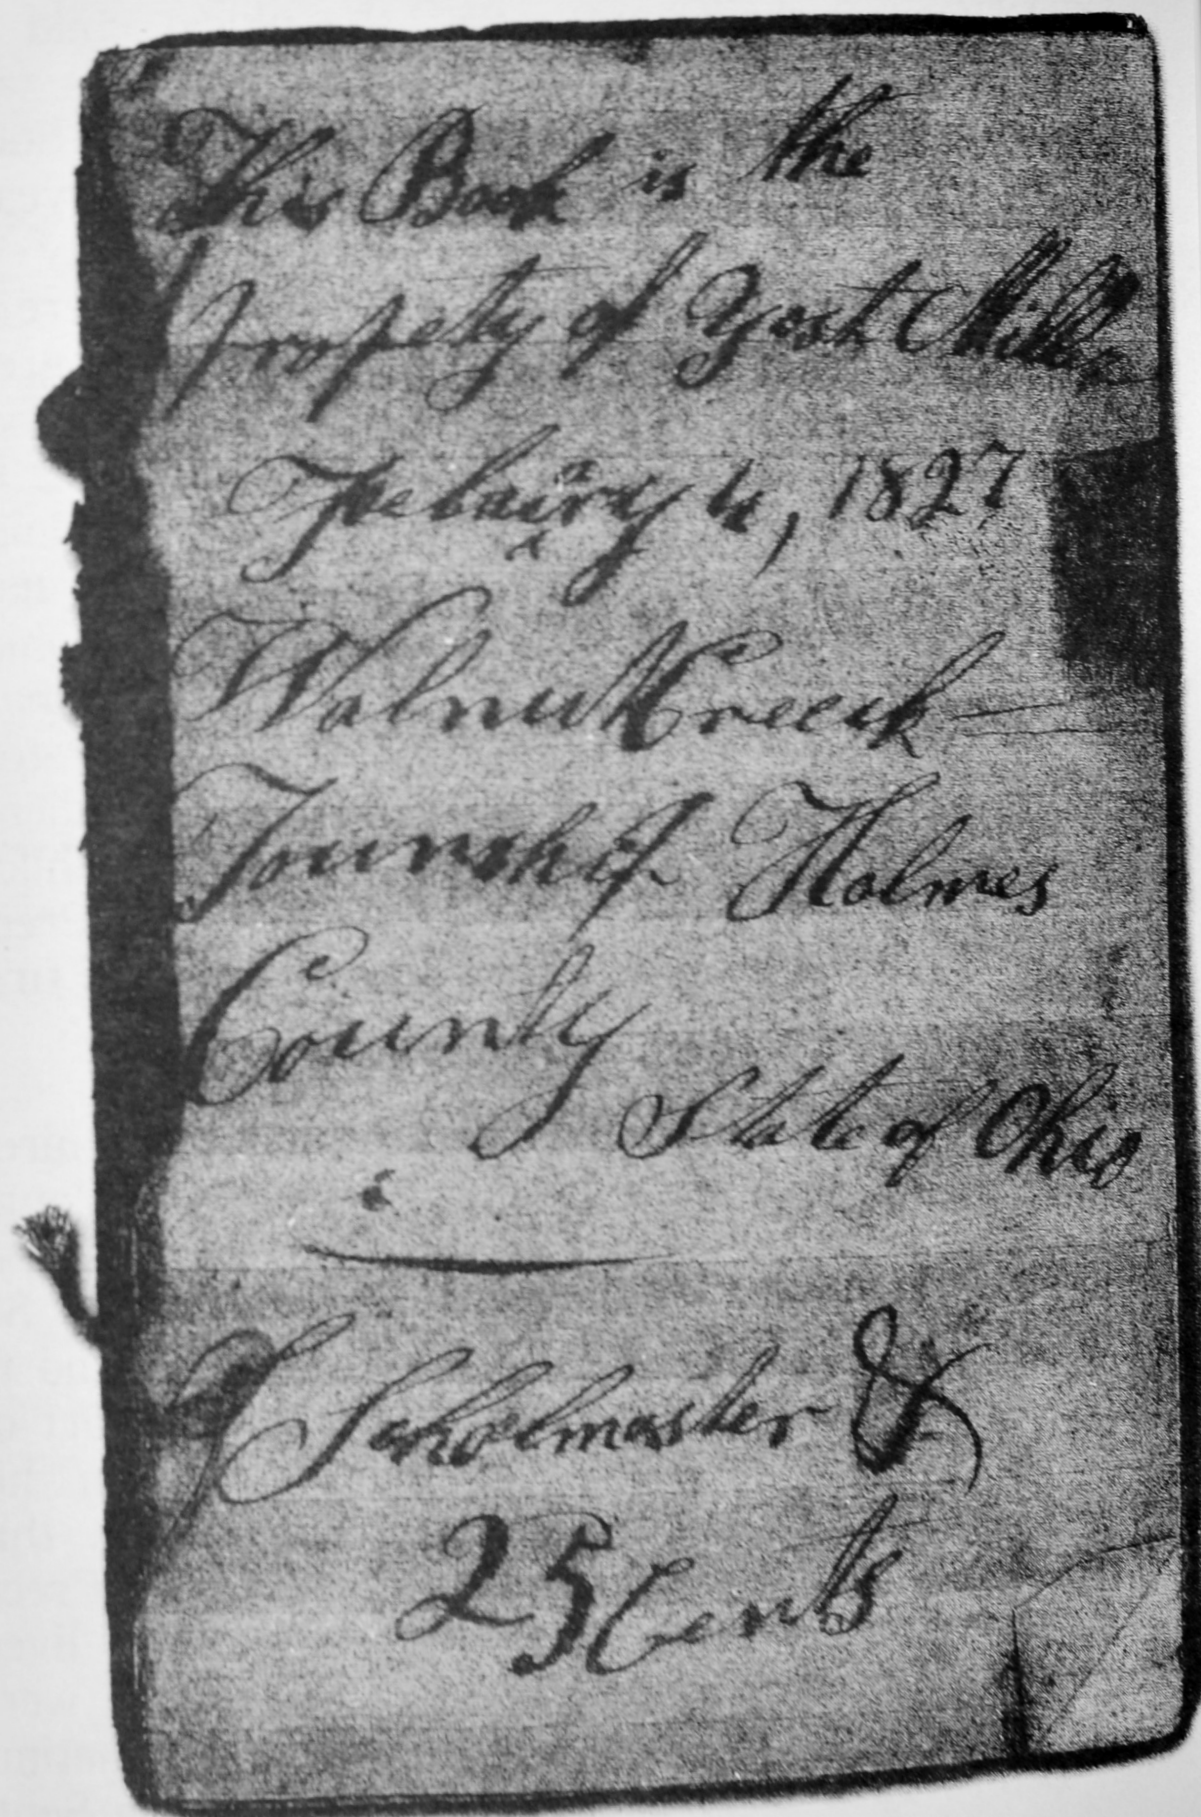 This Book is the
Propety of Yost Miller
Febairy 4, 1827
Walnut Creeck
Township Holmes
County
State of Ohio
Scholmaster &
25 Cents